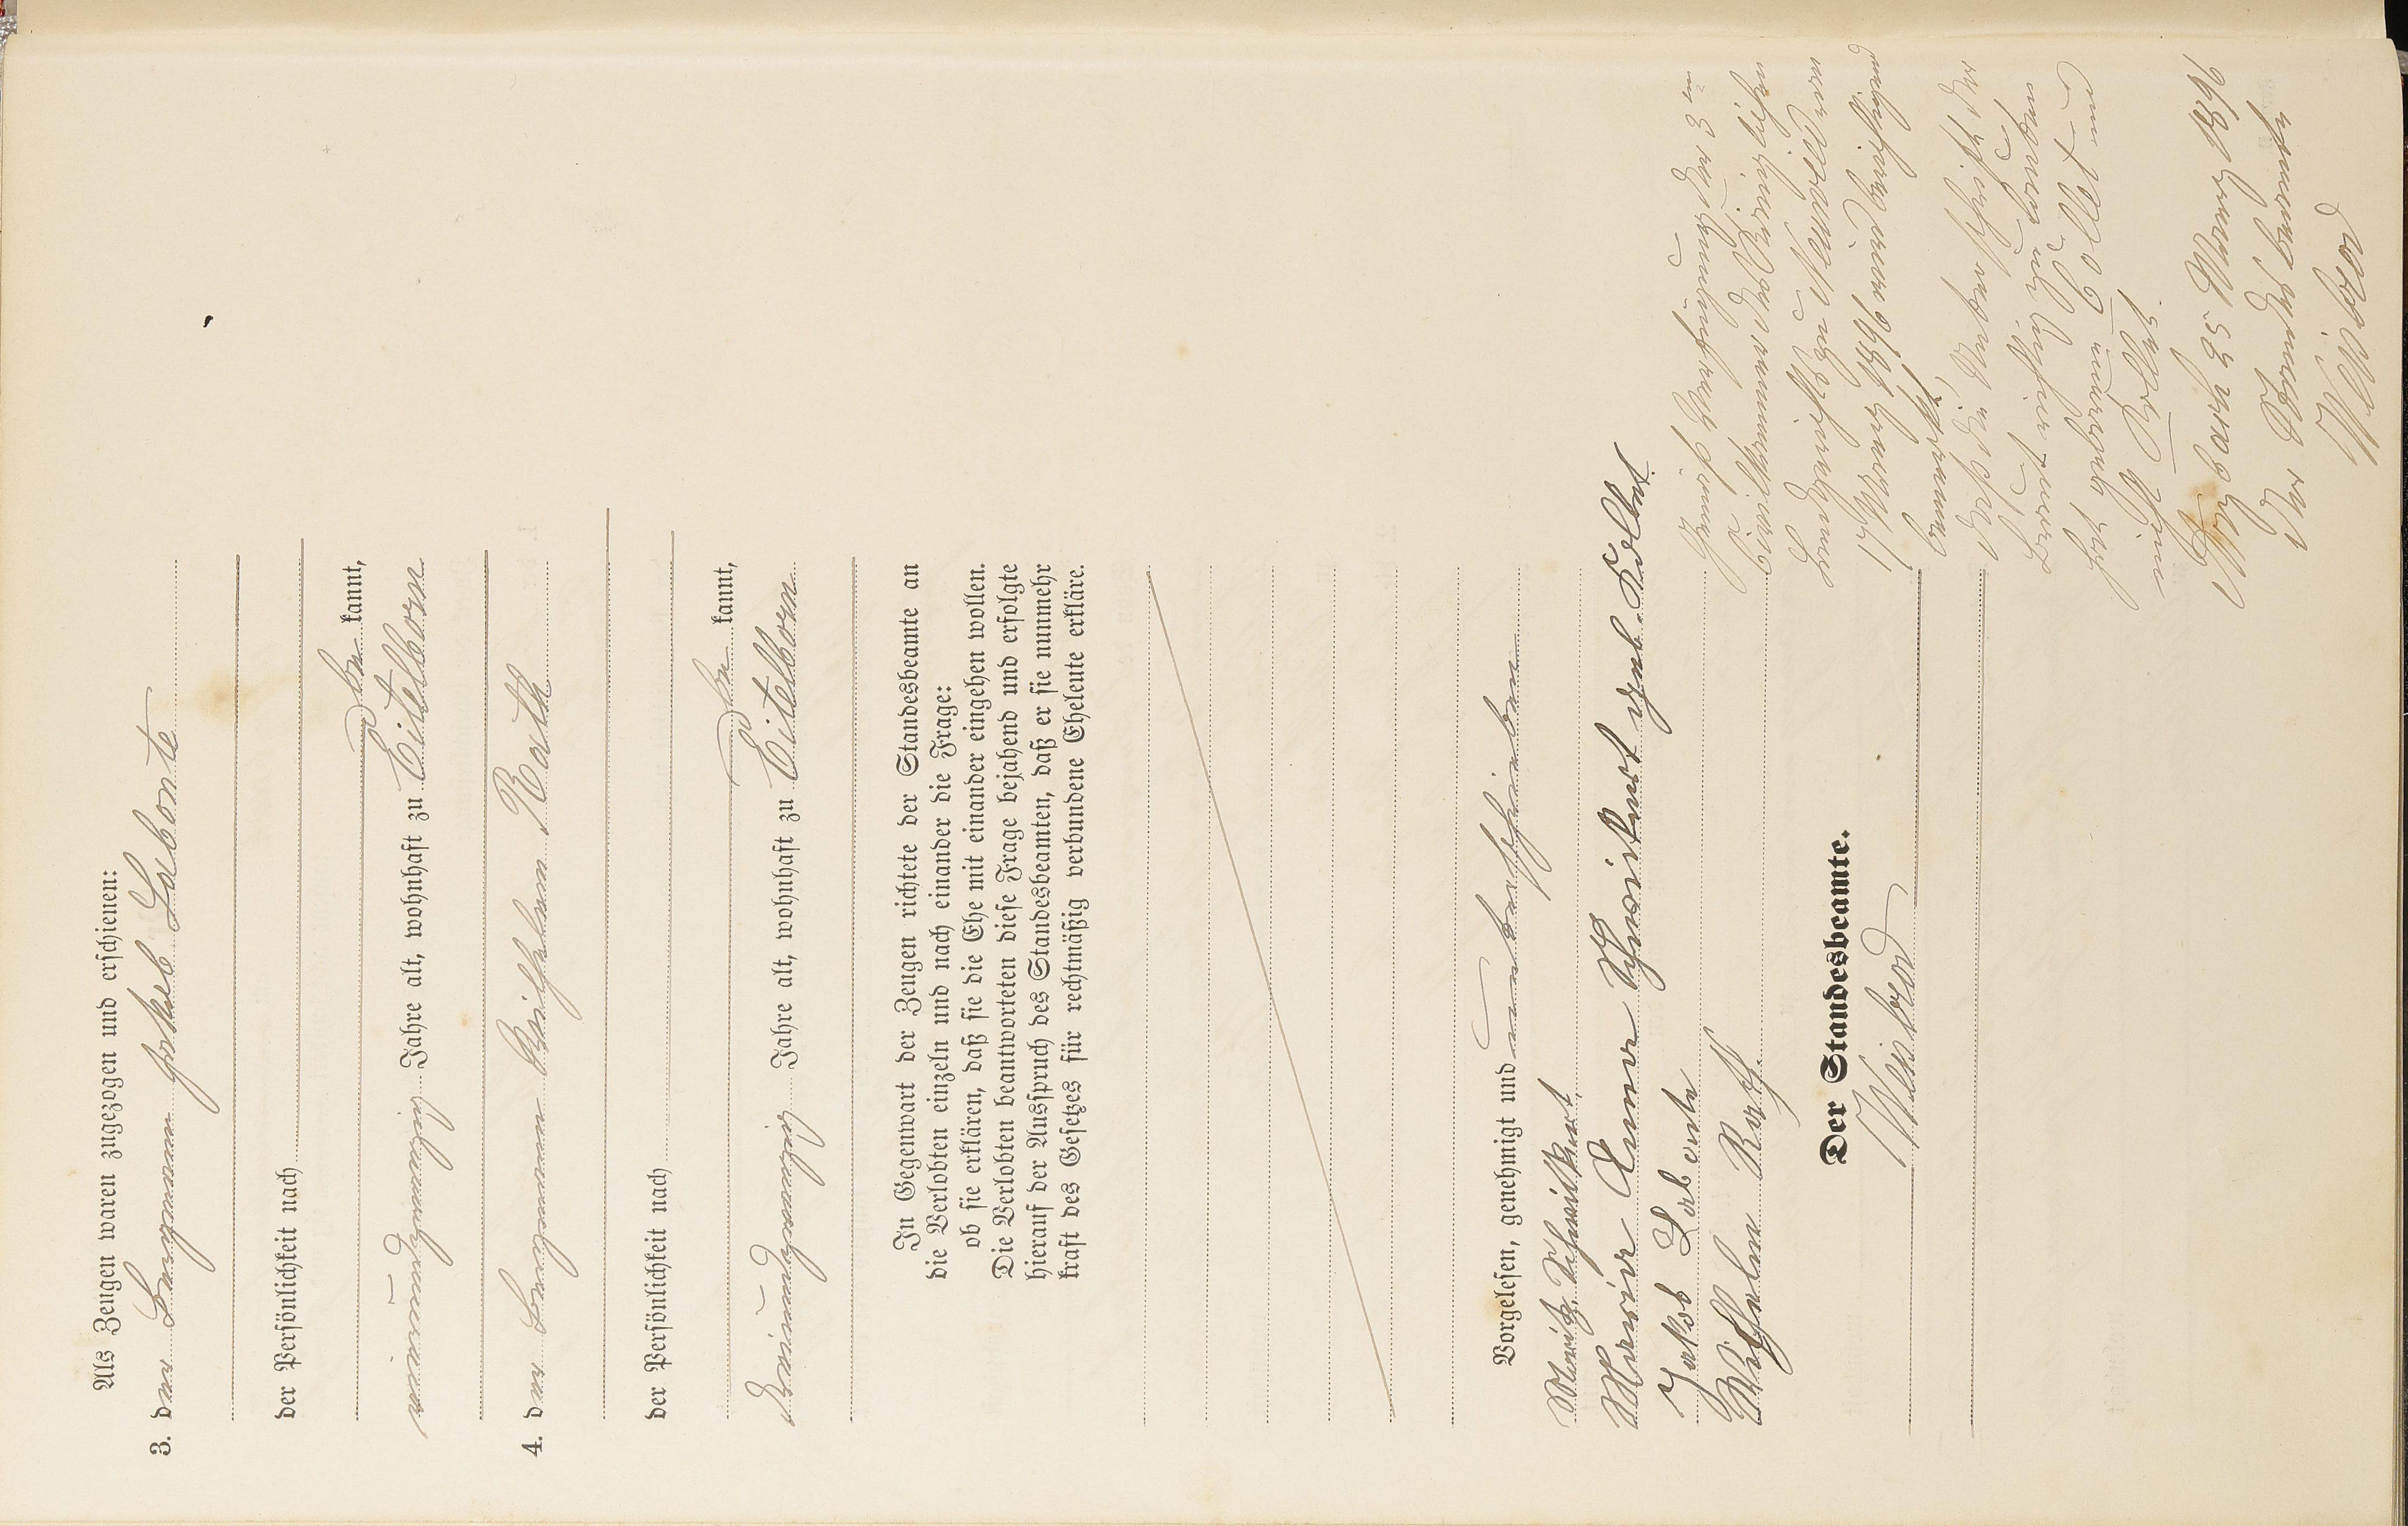 Als Zeugen waren zugezogen und erschienen:
3. der Bergmann Jakob Labonte
der Persönlichkeit nach
be kannt,
vierundzwanzig Jahre alt, wohnhaft zu Eitelborn
4. der Bergmann Wilhelm Rath
der Persönlichkeit nach
be kannt,
dreiundzwanzig Jahre alt, wohnhaft zu Eitelborn
In Gegenwart der Zeugen richtete der Standesbeamte an
die Verlobten einzeln und nach einander die Frage:
ob sie erklären, daß sie die Ehe mit einander eingehen wollen.
Die Verlobten beantworteten diese Frage bejahend und erfolgte
hierauf der Ausspruch des Standesbeamten, daß er sie nunmehr
kraft des Gesetzes für rechtmäßig verbundene Eheleute erkläre.
Vorgelesen, genehmigt und unterschrieben
Moritz Schweikert
Maria Anna Schweikert geb. Kolbet
Jakob Labonte
Wilhelm Rath
Der Standesbeamte.
Weisbrod
der 3ten
Civilkammer des Königlichen
Landgerichts zu Neuwied vom
17 März 1896 wird berichtigend
bemerkt,
daß die Unterschrift der
Kolbet und
1896
Der Standesbeamte
Weisbrod